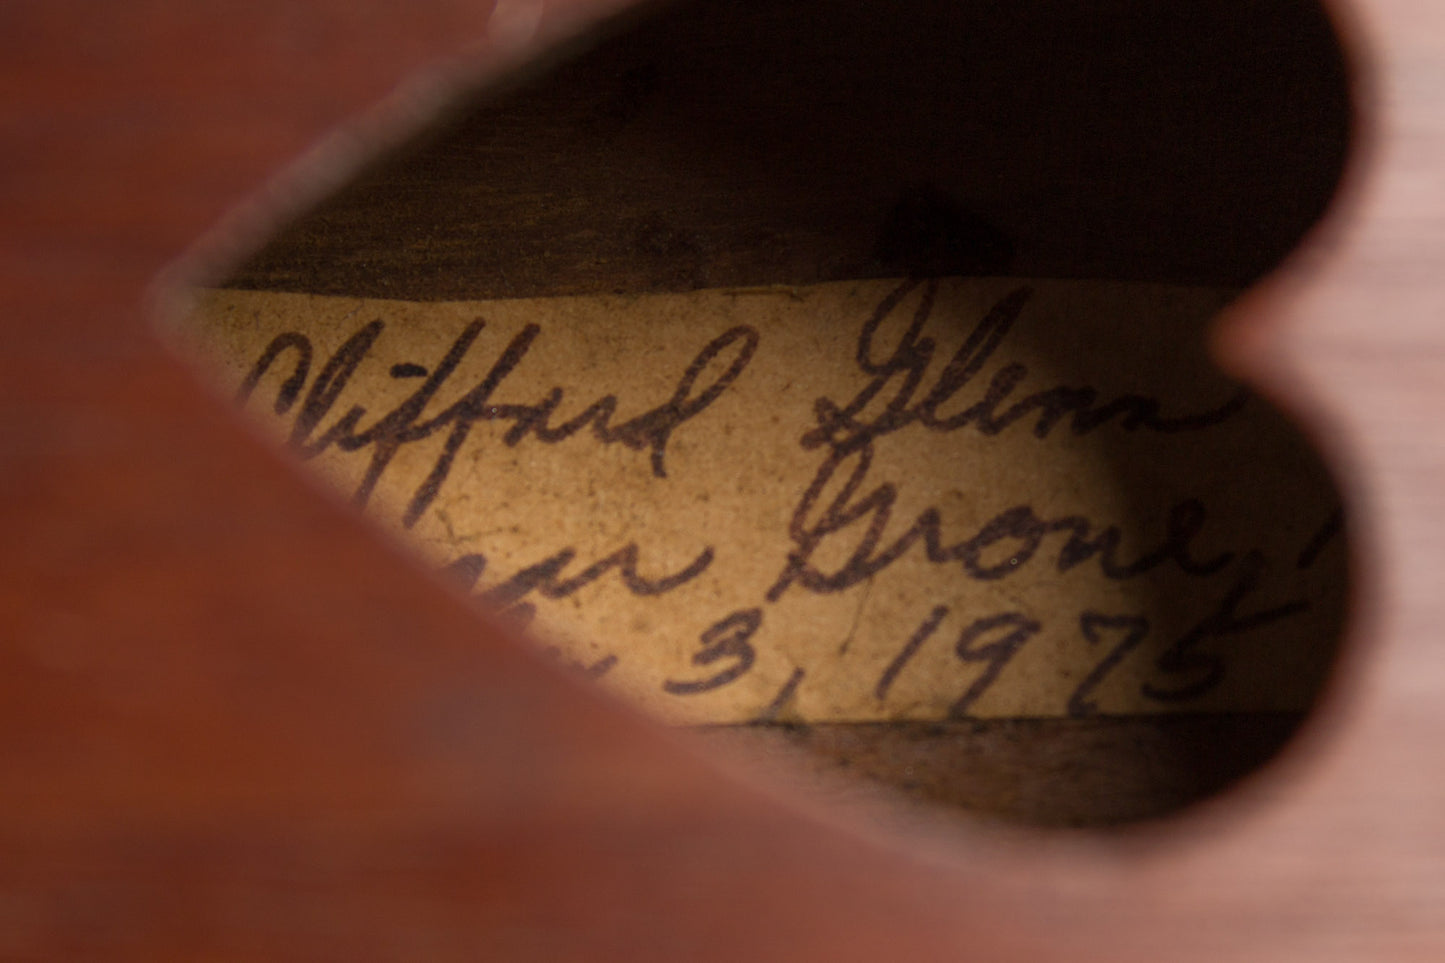 Clifford Glenn
Grove,
3, 1975